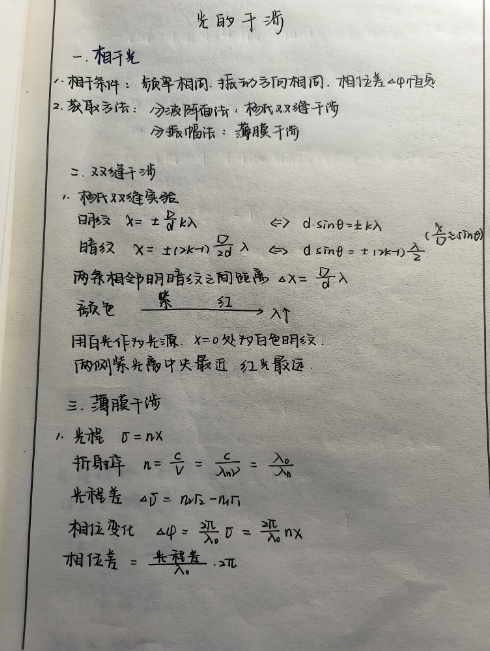 光的干涉
一. 相干光
1. 相干条件: 频率相同. 振动方向相同. 相位差 Δφ 恒定
2. 获取方法: 分波阵面法: 杨氏双缝干涉
分振幅法: 薄膜干涉
二. 双缝干涉
1. 杨氏双缝实验
明纹 x = ± D/d kλ <=> d·sinθ = ±kλ
暗纹 x = ±(2k-1) D/2d λ <=> d sinθ = ±(2k-1) λ/2 (x/D ≈ sinθ)
两条相邻明暗纹之间距离 Δx = D/d λ
颜色 紫 红 → λ↑
用白光作为光源. x=0处为白色明纹.
两侧紫光离中央最近 红光最远.
三. 薄膜干涉
1. 光程 δ = nx
折射率 n = c/v = c/λnν = λ₀/λn
光程差 Δδ = n₂r₂ - n₁r₁
相位变化 Δφ = 2π/λ₀ δ = 2π/λ₀ nx
相位差 = 光程差/λ₀ · 2π